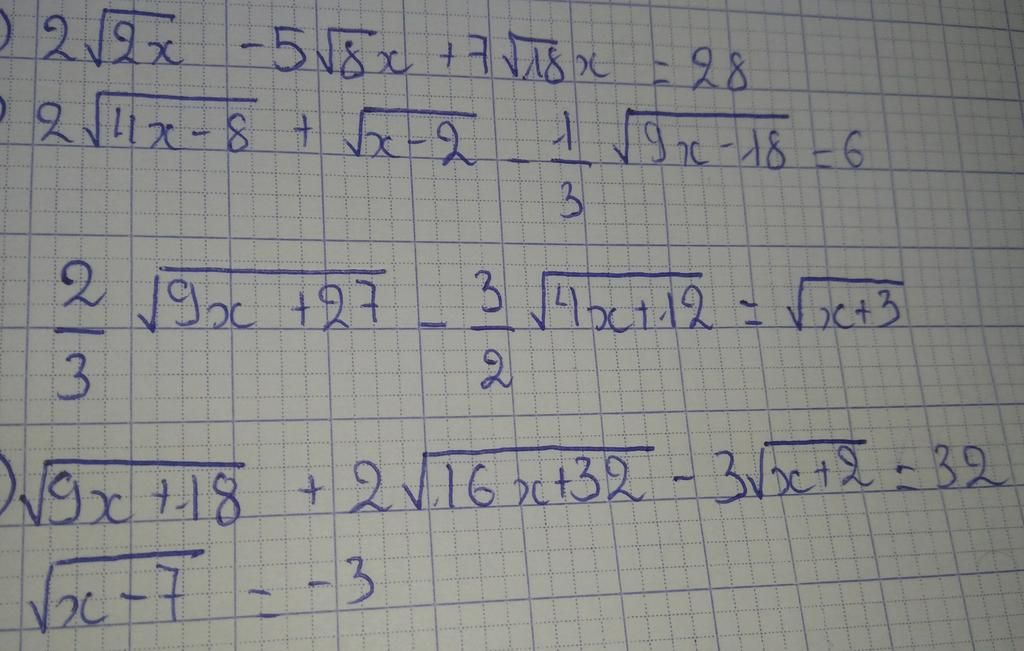 ) 2√2x - 5√8x + 7√18x = 28
) 2√4x-8 + √x-2 - 1/3 √9x-18 = 6
2/3 √9x+27 - 3/2 √4x+12 = √x+3
) √9x+18 + 2√16x+32 - 3√x+2 = 32
√x-7 = -3